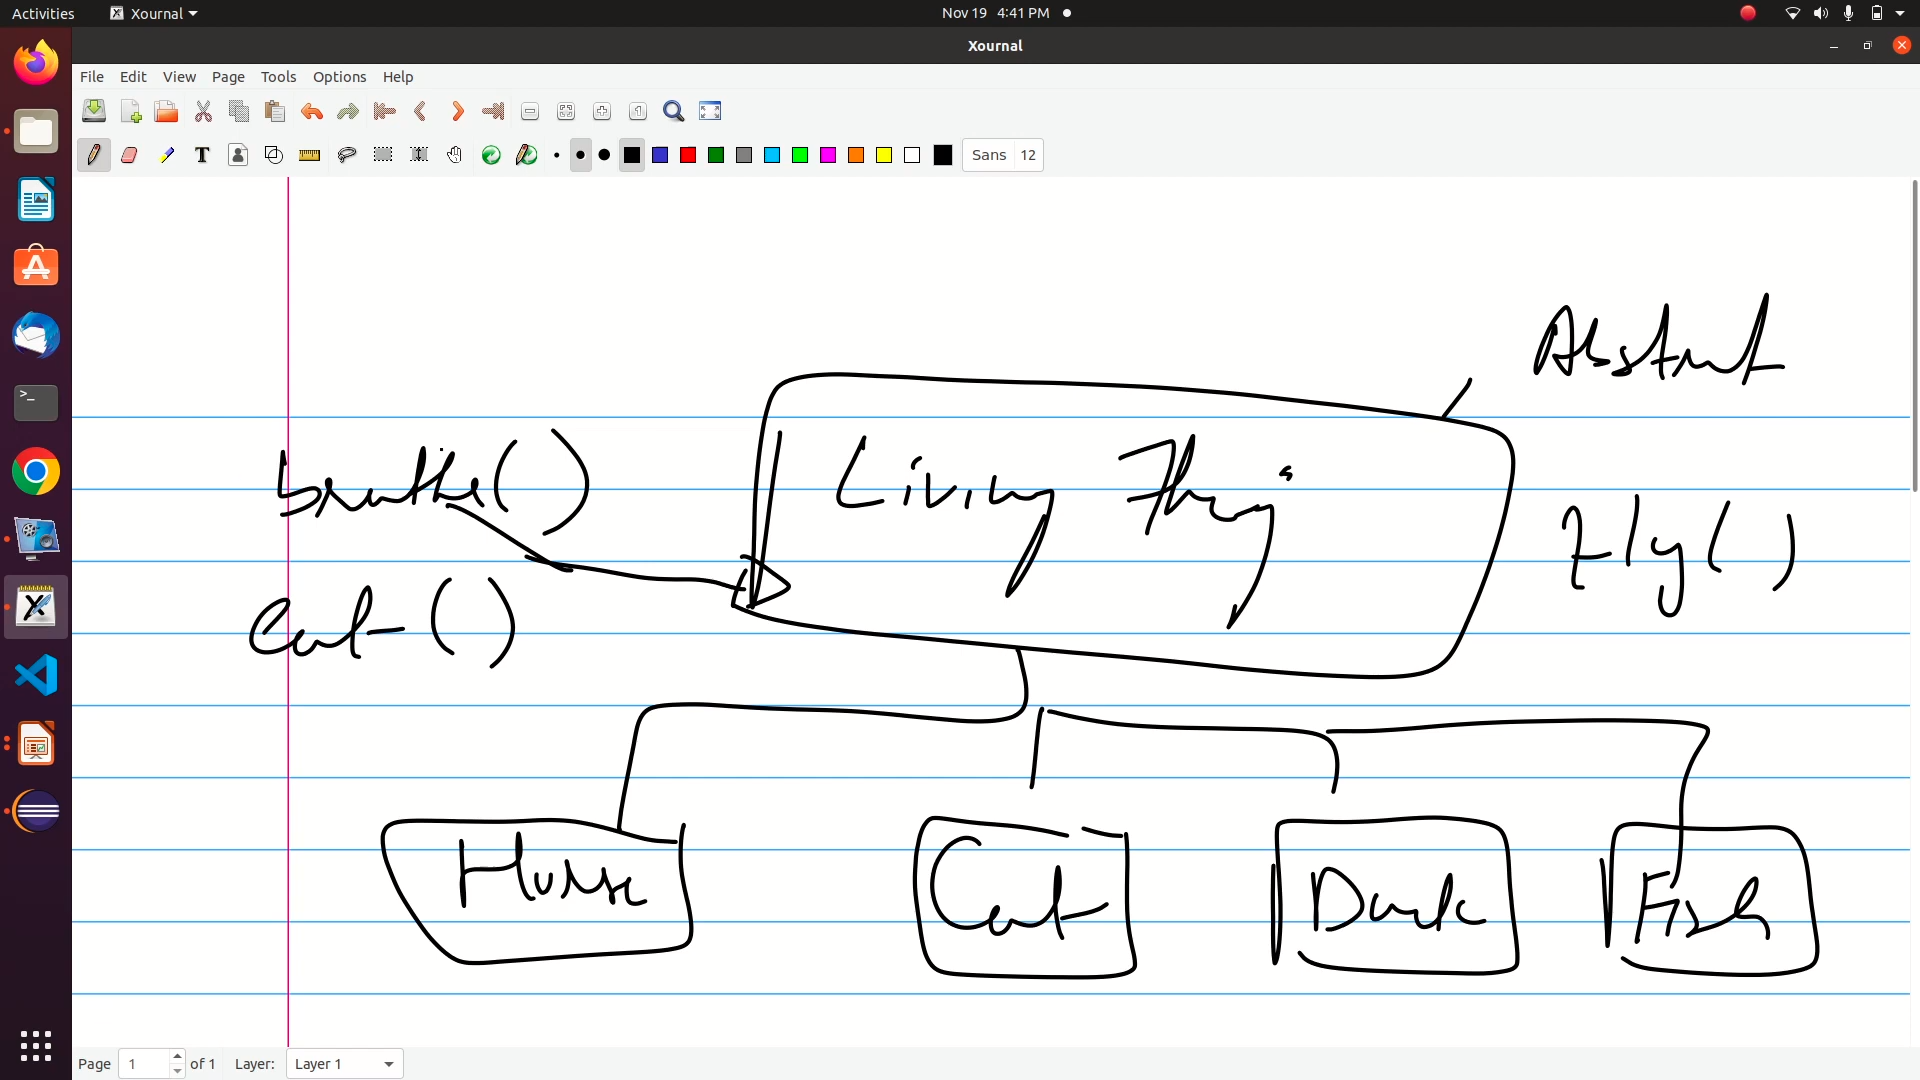 Activities Xournal Nov 19 4:41 PM
Xournal
File Edit View Page Tools Options Help
Sans 12
Abstract
breathe() Living Things
Fly()
Eat()
Horse Cat Duck Fish
Page 1 of 1 Layer: Layer 1